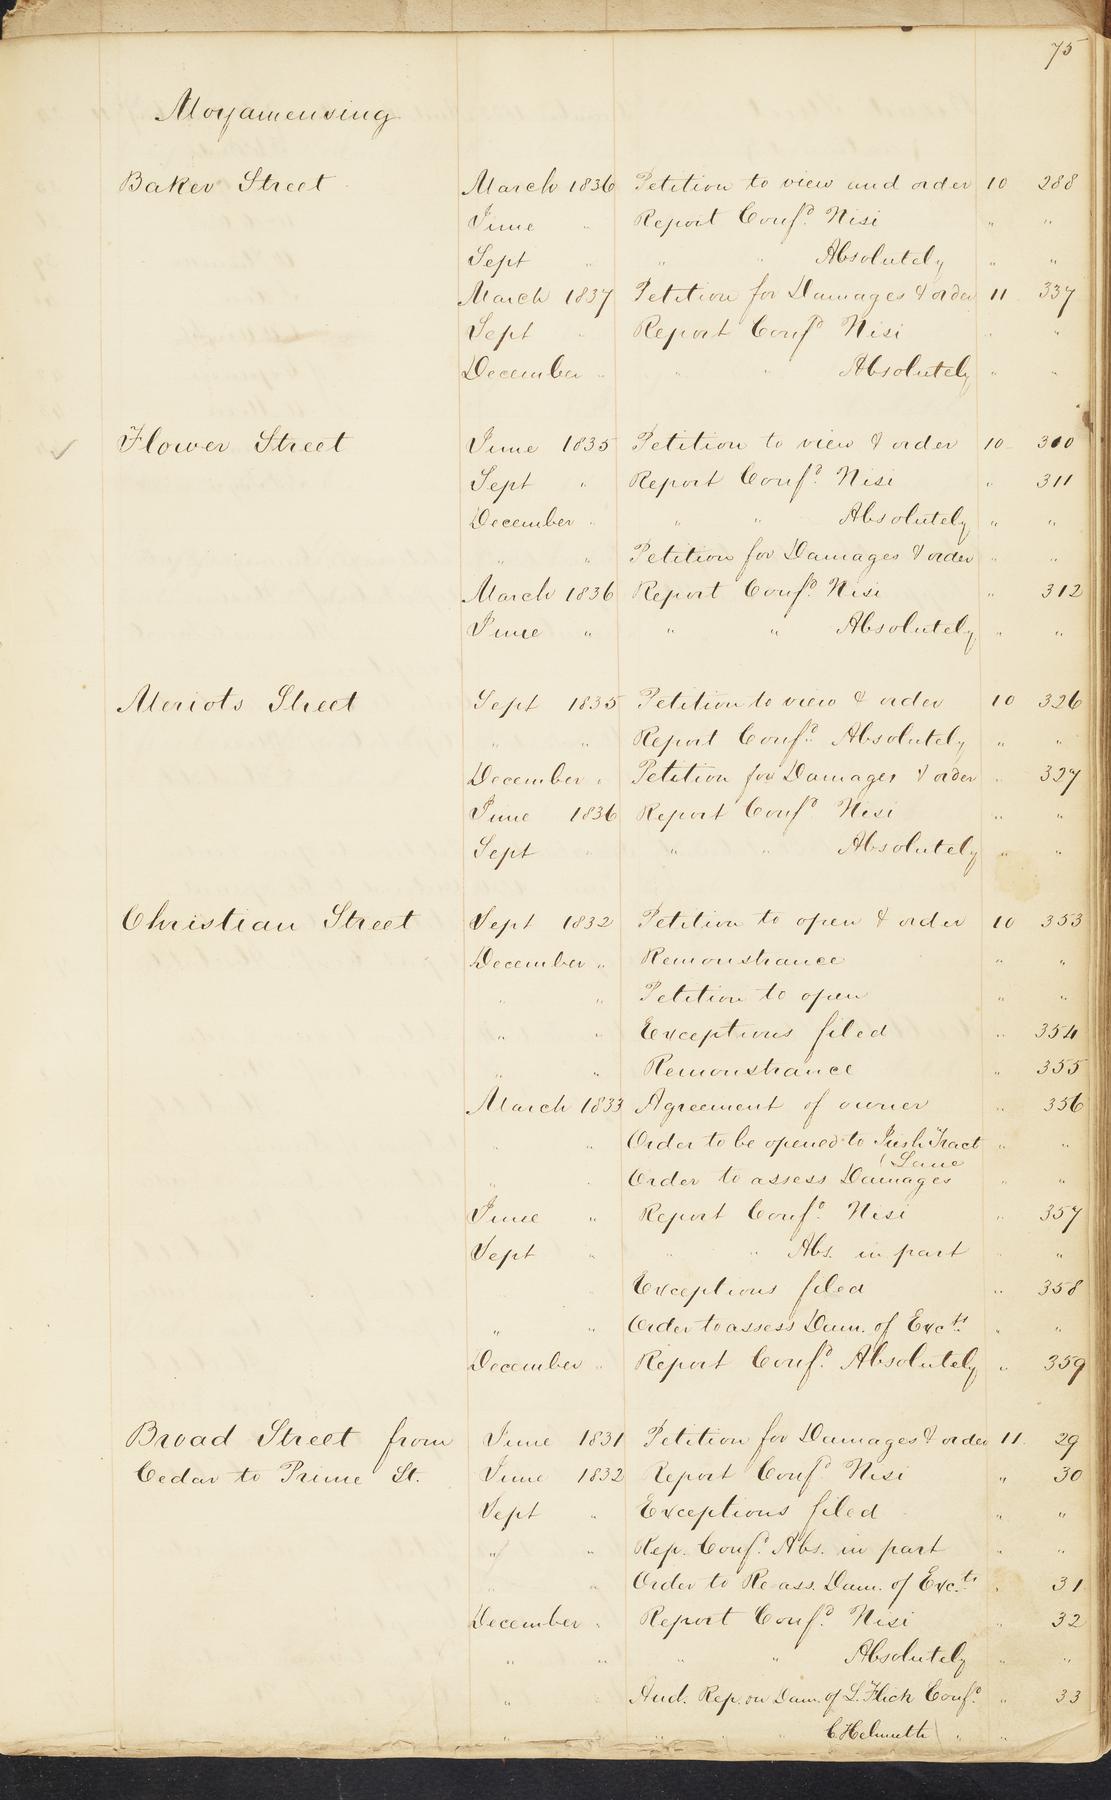 75
Moyamensing
Baker Street March 1836 Petition to view and order 10 288
June " Report Confd. Nisi " "
Sept " " " Absolutely " "
March 1837 Petition for Damages & order 11 337
Sept " Report Confd Nisi " "
December " " " Absolutely " "
Flower Street June 1835 Petition to view & order 10 310
Sept " Report Confd. Nisi " 311
December " " " Absolutely " "
" " Petition for Damages & order " "
March 1836 Report Confd. Nisi " 312
June " " " Absolutely " "
Meriots Street Sept 1835 Petition to view & order 10 326
" " Report Confd. Absolutely " "
December " Petition for Damages & order " 327
June 1836 Report Confd Nisi " "
Sept " " " Absolutely " "
Christian Street Sept 1832 Petition to open & order 10 353
December " Remonstrance " "
" " Petition to open " "
" " Exceptions filed " 354
" " Remonstrance " 355
March 1833 Agreement of owner " 356
" " Order to be opened to Irish Tract " "
Lane
" " Order to assess Damages " "
June " Report Confd. Nisi " 357
Sept " " " Abs. in part " "
Exceptions filed " 358
" " Order to assess Dam. of Excts. " "
December " Report Confd. Absolutely " 359
Broad Street from June 1831 Petition for Damages & order 11 29
Cedar to Prime St. June 1832 Report Confd. Nisi " 30
Sept " Exceptions filed " "
" " Rep. Confd. Abs. in part " "
" " Order to Re ass. Dam. of Exc.ts " 31
December " Report Confd. Nisi " 32
" " " " Absolutely " "
" " Aud. Rep. on Dam. of L. Flick Confd. " 33
" " " C Helmuth " "